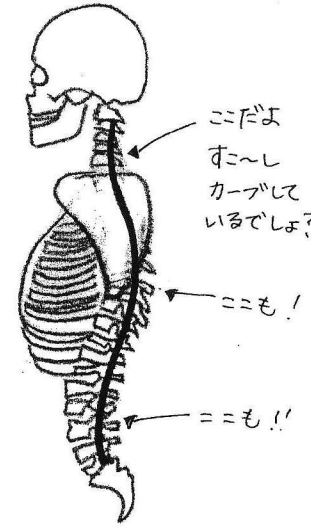 ここだよ
すこ〜し
カーブして
いるでしょ?
ここも!
ここも!!